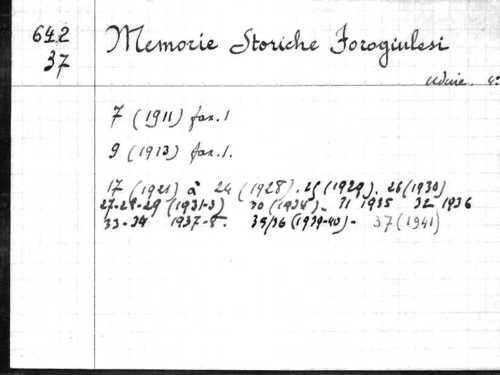 642
37
Memorie Storiche Forogiulesi
Udine. 4:
7 (1911) fas. 1
9 (1913) fas. 1.
17 (1921) à 24 (1928). 25 (1929). 26 (1930)
27-28-29 (1931-3) 30 (1934)- 31 1935 32 1936
33-34 1937-8. 35/36 (1939-40)- 37 (1941)